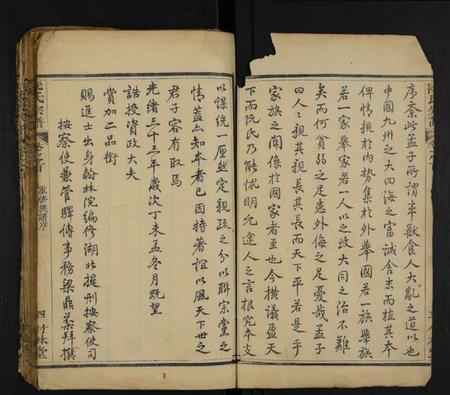 序奈此孟子所謂率獸食人大亂之道以也
中國九州之大四海之富誠舍末而植其本
俾情親於內勢集於外舉國若一族舉族
若一家舉家若一人以之政大同之治不難
矣而何貧弱之足患外侮之足憂哉孟子
曰人人親其親長其長而天下平若是乎
家族之關係於國家者至也今橫議盈天
下而阮氏乃能怵明允途人之言根究本支
以謀統一厘然定親疏之分以聯宗黨之
情蓋知本者已因特著誼以風天下世之
君子容有取焉
光緒三十三年歲次丁未孟冬月既望
誥授資政大夫
賞加二品銜
賜進士出身翰林院編修湖北提刑按察使司
按察使兼管驛傳事務梁鼎芬拜撰
阮氏宗譜
卷之首
四
竹林堂